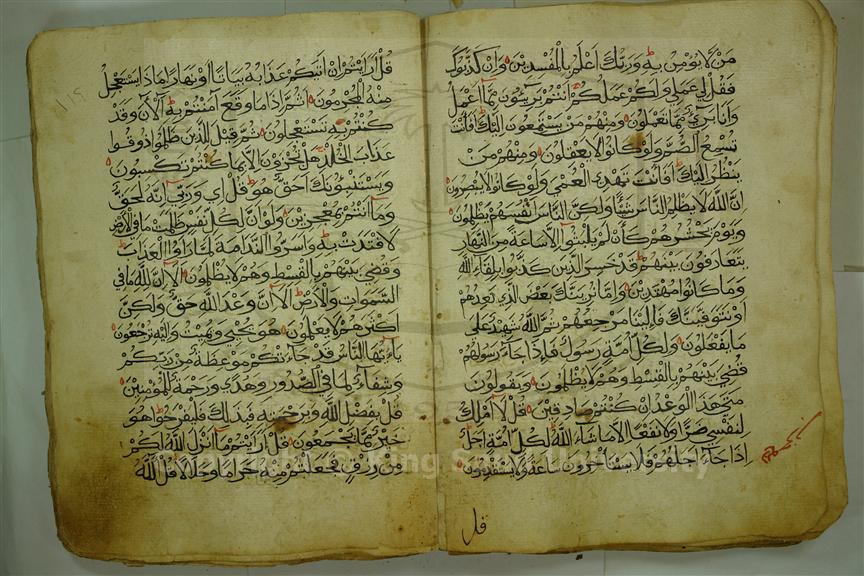 مَنْ لَا يُؤْمِنُ بِهِ وَرَبُّكَ أَعْلَمُ بِالْمُفْسِدِينَ وَإِنْ كَذَّبُوكَ
فَقُلْ لِي عَمَلِي وَلَكُمْ عَمَلُكُمْ أَنْتُمْ بَرِيئُونَ مِمَّا أَعْمَلُ
وَأَنَا بَرِيءٌ مِمَّا تَعْمَلُونَ وَمِنْهُمْ مَنْ يَسْتَمِعُونَ إِلَيْكَ أَفَأَنْتَ
تُسْمِعُ الصُّمَّ وَلَوْ كَانُوا لَا يَعْقِلُونَ وَمِنْهُمْ مَنْ
يَنْظُرُ إِلَيْكَ أَفَأَنْتَ تَهْدِي الْعُمْيَ وَلَوْ كَانُوا لَا يُبْصِرُونَ
إِنَّ اللَّهَ لَا يَظْلِمُ النَّاسَ شَيْئًا وَلَكِنَّ النَّاسَ أَنْفُسَهُمْ يَظْلِمُونَ
وَيَوْمَ نَحْشُرُهُمْ كَأَنْ لَمْ يَلْبَثُوا إِلَّا سَاعَةً مِنَ النَّهَارِ
يَتَعَارَفُونَ بَيْنَهُمْ قَدْ خَسِرَ الَّذِينَ كَذَّبُوا بِلِقَاءِ اللَّهِ
وَمَا كَانُوا مُهْتَدِينَ وَإِمَّا نُرِيَنَّكَ بَعْضَ الَّذِي نَعِدُهُمْ
أَوْ نَتَوَفَّيَنَّكَ فَإِلَيْنَا مَرْجِعُهُمْ ثُمَّ اللَّهُ شَهِيدٌ عَلَى
مَا يَفْعَلُونَ وَلِكُلِّ أُمَّةٍ رَسُولٌ فَإِذَا جَاءَ رَسُولُهُمْ
قُضِيَ بَيْنَهُمْ بِالْقِسْطِ وَهُمْ لَا يُظْلَمُونَ وَيَقُولُونَ
مَتَى هَذَا الْوَعْدُ إِنْ كُنْتُمْ صَادِقِينَ قُلْ لَا أَمْلِكُ
لِنَفْسِي ضَرًّا وَلَا نَفْعًا إِلَّا مَا شَاءَ اللَّهُ لِكُلِّ أُمَّةٍ أَجَلٌ
إِذَا جَاءَ أَجَلُهُمْ فَلَا يَسْتَأْخِرُونَ سَاعَةً وَلَا يَسْتَقْدِمُونَ
قل
١١٢
قُلْ أَرَأَيْتُمْ إِنْ أَتَيكُمْ عَذَابُهُ بَيَاتًا أَوْ نَهَارًا مَاذَا يَسْتَعْجِلُ
مِنْهُ الْمُجْرِمُونَ أَثُمَّ إِذَا مَا وَقَعَ آمَنْتُمْ بِهِ آلْآنَ وَقَدْ
كُنْتُمْ بِهِ تَسْتَعْجِلُونَ ثُمَّ قِيلَ لِلَّذِينَ ظَلَمُوا ذُوقُوا
عَذَابَ الْخُلْدِ هَلْ تُجْزَوْنَ إِلَّا بِمَا كُنْتُمْ تَكْسِبُونَ
وَيَسْتَنْبِئُونَكَ أَحَقٌّ هُوَ قُلْ إِي وَرَبِّي إِنَّهُ لَحَقٌّ
وَمَا أَنْتُمْ بِمُعْجِزِينَ وَلَوْ أَنَّ لِكُلِّ نَفْسٍ ظَلَمَتْ مَا فِي الْأَرْضِ
لَافْتَدَتْ بِهِ وَأَسَرُّوا النَّدَامَةَ لَمَّا رَأَوُا الْعَذَابَ
وَقُضِيَ بَيْنَهُمْ بِالْقِسْطِ وَهُمْ لَا يُظْلَمُونَ أَلَا إِنَّ لِلَّهِ مَا فِي
السَّمَوَاتِ وَالْأَرْضِ أَلَا إِنَّ وَعْدَ اللَّهِ حَقٌّ وَلَكِنَّ
أَكْثَرَهُمْ لَا يَعْلَمُونَ هُوَ يُحْيِي وَيُمِيتُ وَإِلَيْهِ تُرْجَعُونَ
يَا أَيُّهَا النَّاسُ قَدْ جَاءَتْكُمْ مَوْعِظَةٌ مِنْ رَبِّكُمْ
وَشِفَاءٌ لِمَا فِي الصُّدُورِ وَهُدًى وَرَحْمَةٌ لِلْمُؤْمِنِينَ
قُلْ بِفَضْلِ اللَّهِ وَبِرَحْمَتِهِ فَبِذَلِكَ فَلْيَفْرَحُوا هُوَ
خَيْرٌ مِمَّا يَجْمَعُونَ قُلْ أَرَأَيْتُمْ مَا أَنْزَلَ اللَّهُ لَكُمْ
مِنْ رِزْقٍ فَجَعَلْتُمْ مِنْهُ حَرَامًا وَحَلَالًا قُلْ آللَّهُ
Copyright © King Saud University